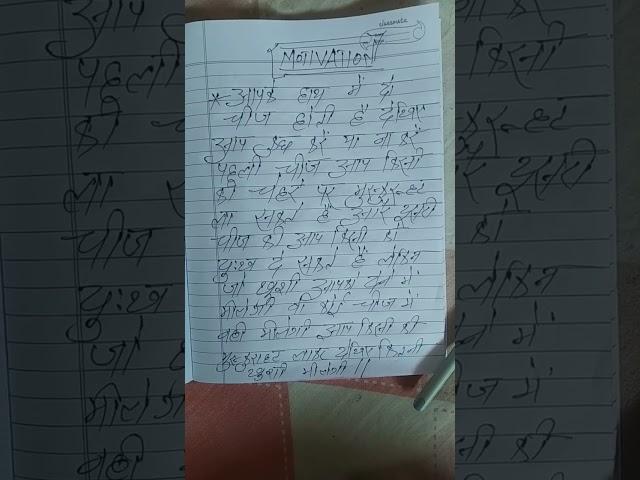 classmate
MOTIVATION
* आपके हाथ में दो
चीज होती है देखिए
आप कुछ करें या ना करें
पहली चीज आप किसी
के चेहरे पर मुस्कुराहट
ला सकते हैं और दूसरी
चीज की आप किसी को
दुःख दे सकते हैं लेकिन
जो खुशी आपको देने में
मीलेगी वो कोई चीज में
नही मीलेगी आप किसी की
मुस्कुराहट लाकर देखिए कितनी
खुशी मीलेगी ||